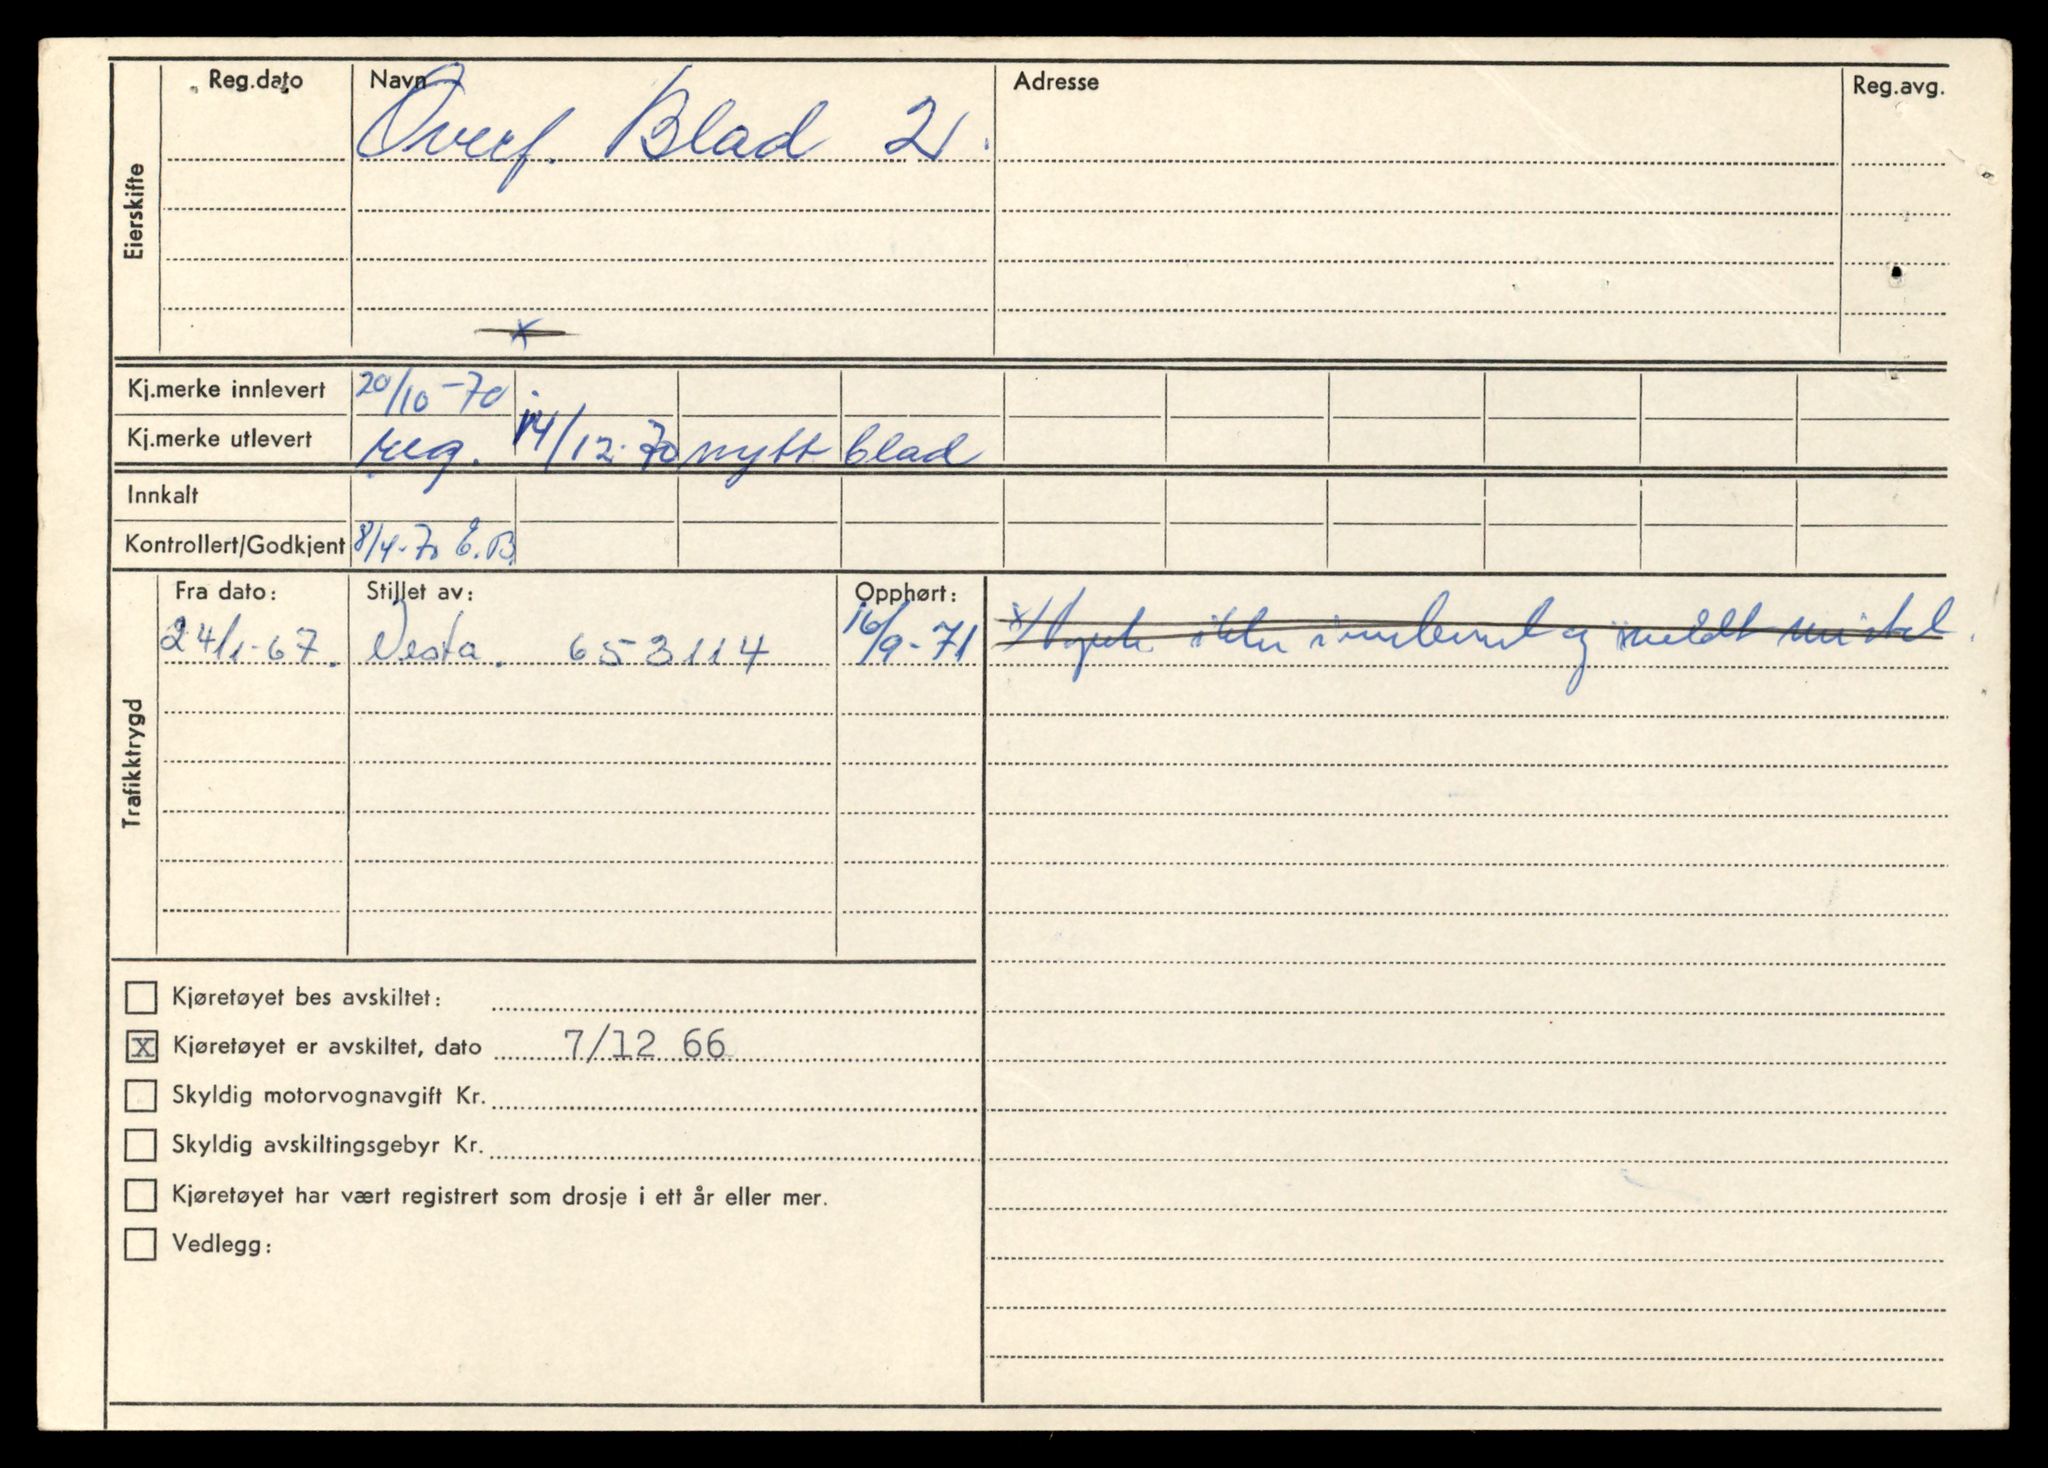 Eierskifte
Reg.dato Navn Adresse Reg.avg.
Overf. Blad 2.
x
Kj.merke innlevert 20/10-70
Kj.merke utlevert reg. 14/12-70 nytt blad
Innkalt
Kontrollert/Godkjent 8/4-70 E.B.
Trafikktrygd
Fra dato: Stillet av: Opphørt:
24/1-67. Vesta. 653114 16/9-71 x ikke innlevert og meldt mistet.
Kjøretøyet bes avskiltet:
x Kjøretøyet er avskiltet, dato 7/12 66
Skyldig motorvognavgift Kr.
Skyldig avskiltingsgebyr Kr.
Kjøretøyet har vært registrert som drosje i ett år eller mer.
Vedlegg: